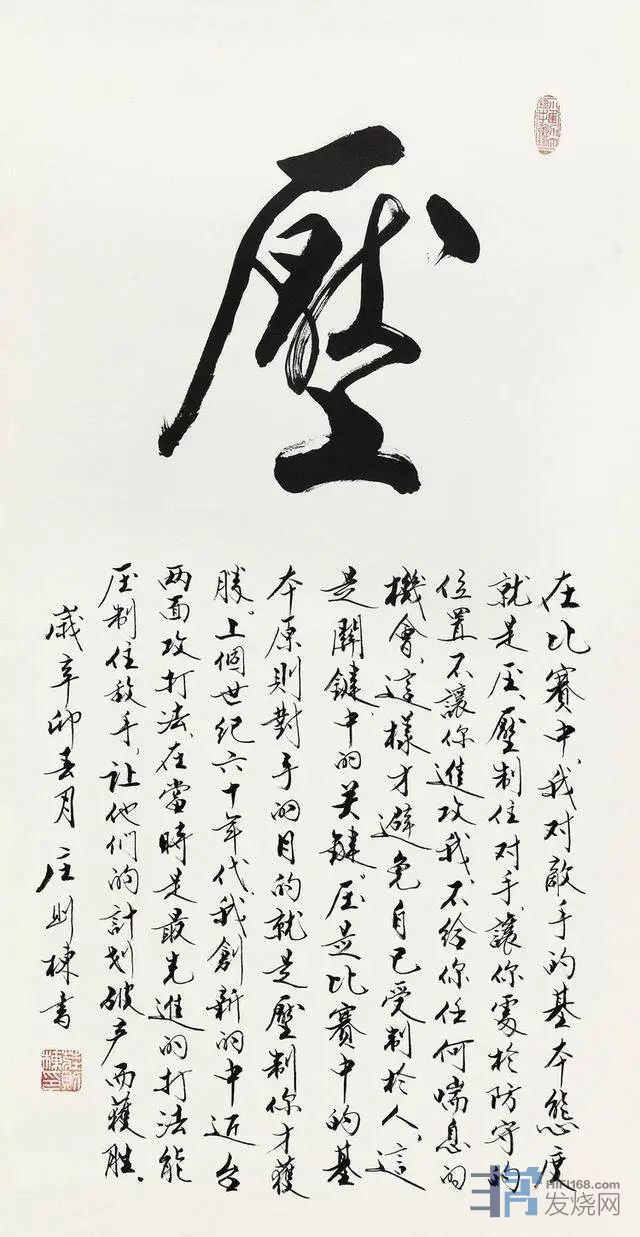 壓
在比赛中,我对敵手的基本態度
就是压,壓制住对手,讓你處於防守的
位置,不讓你進攻我,不给你任何喘息的
機會,這樣才避免自己受制於人,這
是關鍵中的关键。压是比赛中的基
本原則,對手的目的就是壓制你才獲
勝。上個世纪六十年代,我創新的中近台
两面攻打法,在當時是最先進的打法,能
压制住敌手,让他們的計划破产而獲胜。
歲辛卯春月 庄则棟書
莊則棟印
HIFI168.com
发烧网